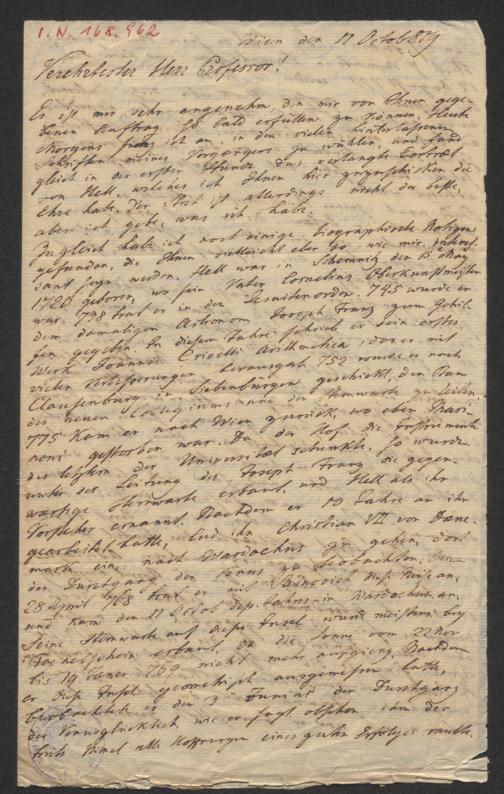 I. N. 168.962
Wien den 17 Octob 819
Verehrtester Herr Professor!
Es ist mir sehr angenehm, den mir von Ihnen gege-
benen Auftrag so bald erfüllen zu können. Heute
Morgens fing ich an, in den vielen hinterlassenen
Schriften meines Vorgängers zu wühlen, und fand
gleich in der ersten Stunde das verlangte Portrait
von Hell, welches ich Ihnen hier zu die
Ehre habe. Der ist allerdings nicht der beste,
aber ich gebe, was ich habe.
Zugleich habe ich noch einige biographische Notizen
gefunden, die Ihnen vielleicht eben so wie mir, interes-
sant seyn werden. Hell war in Schemnitz den 15 May
1720 geboren, wo sein Vater Cornelius Oberkunstmeister
war. 738 trat er in den Jesuitenorden. 745 wurde er
dem damaligen Astronom Joseph Franz zum Gehil-
fen gegeben. In diesem Jahre schrieb er sein erstes
Werk Joannis Crivelli Arithmetica, das er mit
vielen Verbesserungen herausgab. 752 wurde er nach
Clausenburg in Siebenbürgen geschickt, den Bau
des neuen Collegiums und der Sternwarte zu leiten.
755 kam er nach Wien zurück, wo eben Mari-
noni gestorben war. Da der Hof die Instrumente
des letztern der Universität schenkte, so wurde
unter der Leitung des Joseph Franz die gegen-
wärtige Sternwarte erbaut, und Hell als ihr
Vorsteher ernannt. Nachdem er Jahre an ihr
gearbeitet hatte, lud ihn Christian VII von Däne-
mark ein, nach Wardoehus zu gehen, dort
den Durchgang der Venus zu beobachten. Den
28 April 768 trat er mit Sainovich diese Reise an,
und kam den 11 Octob. dess. Jahres in Wardoehus an.
Seine Sternwarte auf dieser Insel wurde meistens bey
Fackelschein erbaut, da die Sonne vom 22 Nov
bis 19 Jäner 769 nicht mehr aufging. Nachdem
er diese Insel geometrisch ausgemessen hatte,
beobachtete er den 3 Junius den Durchgang
der Venus glücklich, wie er sagt, obschon ihm der
trübe Himmel alle Hoffnungen eines guten Erfolges raubte.